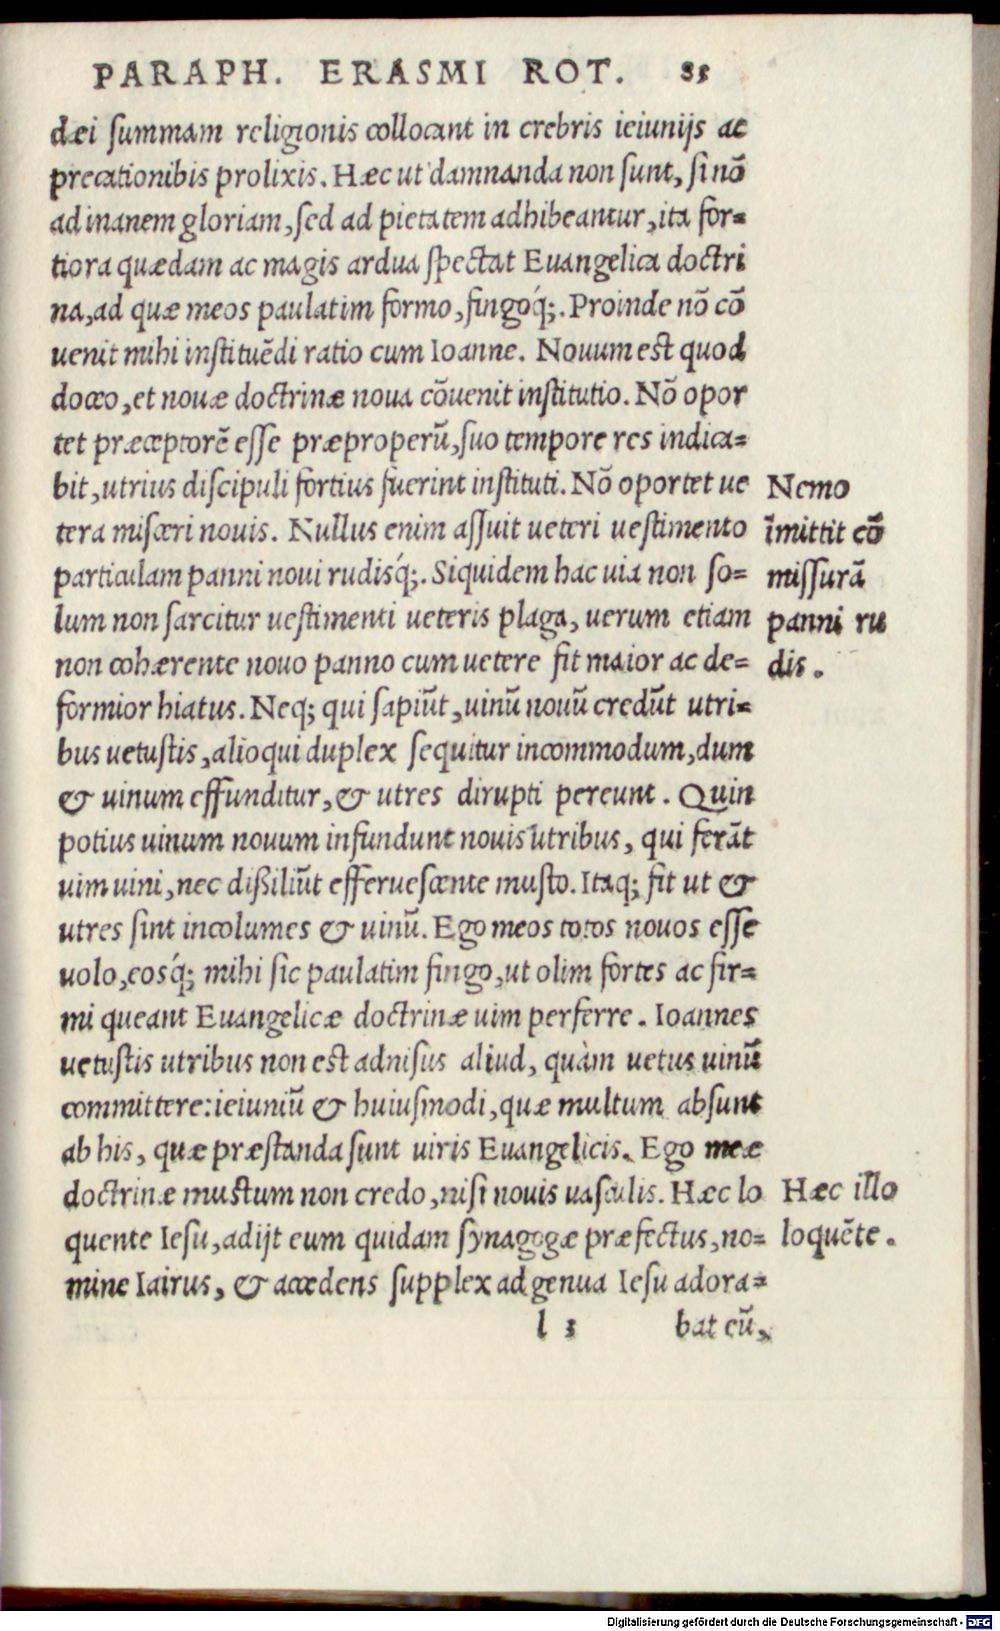 PARAPH. ERASMI ROT. 85
dæi ſummam religionis collocant in crebris ieiunijs ac
precationibis prolixis. Hæc ut damnanda non ſunt, ſi nō
ad inanem gloriam, ſed ad pietatem adhibeantur, ita for=
tiora quædam ac magis ardua ſpectat Euangelica doctri
na, ad quæ meos paulatim formo, fingoq́;. Proinde nō cō
uenit mihi inſtituēdi ratio cum Ioanne. Nouum est quod
doceo, et nouæ doctrinæ noua cōuenit inſtitutio. Nō opor
tet præceptorē eſſe præproperū, ſuo tempore res indica=
bit, utrius diſcipuli fortius fuerint inſtituti. Nō oportet ue
tera miſceri nouis. Nullus enim aſſuit ueteri ueſtimento
particulam panni noui rudisq́;. Siquidem hac uia non ſo=
lum non ſarcitur ueſtimenti ueteris plaga, uerum etiam
non cohærente nouo panno cum uetere fit maior ac de=
formior hiatus. Neq; qui ſapiūt, uinū nouū credūt utri=
bus uetuſtis, alioqui duplex ſequitur incommodum, dum
& uinum effunditur, & utres dirupti pereunt. Quin
potius uinum nouum infundunt nouis utribus, qui ferāt
uim uini, nec dißiliūt efferueſcente muſto. Itaq; fit ut &
utres ſint incolumes & uinū. Ego meos totos nouos eſſe
uolo, eosq́; mihi ſic paulatim fingo, ut olim fortes ac fir=
mi queant Euangelicæ doctrinæ uim perferre. Ioannes
uetuſtis utribus non est adniſus aliud, quàm uetus uinū
committere: ieiuniū & huiuſmodi, quæ multum abſunt
ab his, quæ præſtanda ſunt uiris Euangelicis. Ego meæ
doctrinæ muſtum non credo, niſi nouis uaſculis. Hæc lo
quente Ieſu, adijt eum quidam ſynagogæ præfectus, no=
mine Iairus, & accedens ſupplex ad genua Ieſu adora=
l 3 bat eū,
Nemo
īmittit cō
miſſurā
panni ru
dis.
Hæc illo
loquēte.
Digitalisierung gefördert durch die Deutsche Forschungsgemeinschaft - DFG